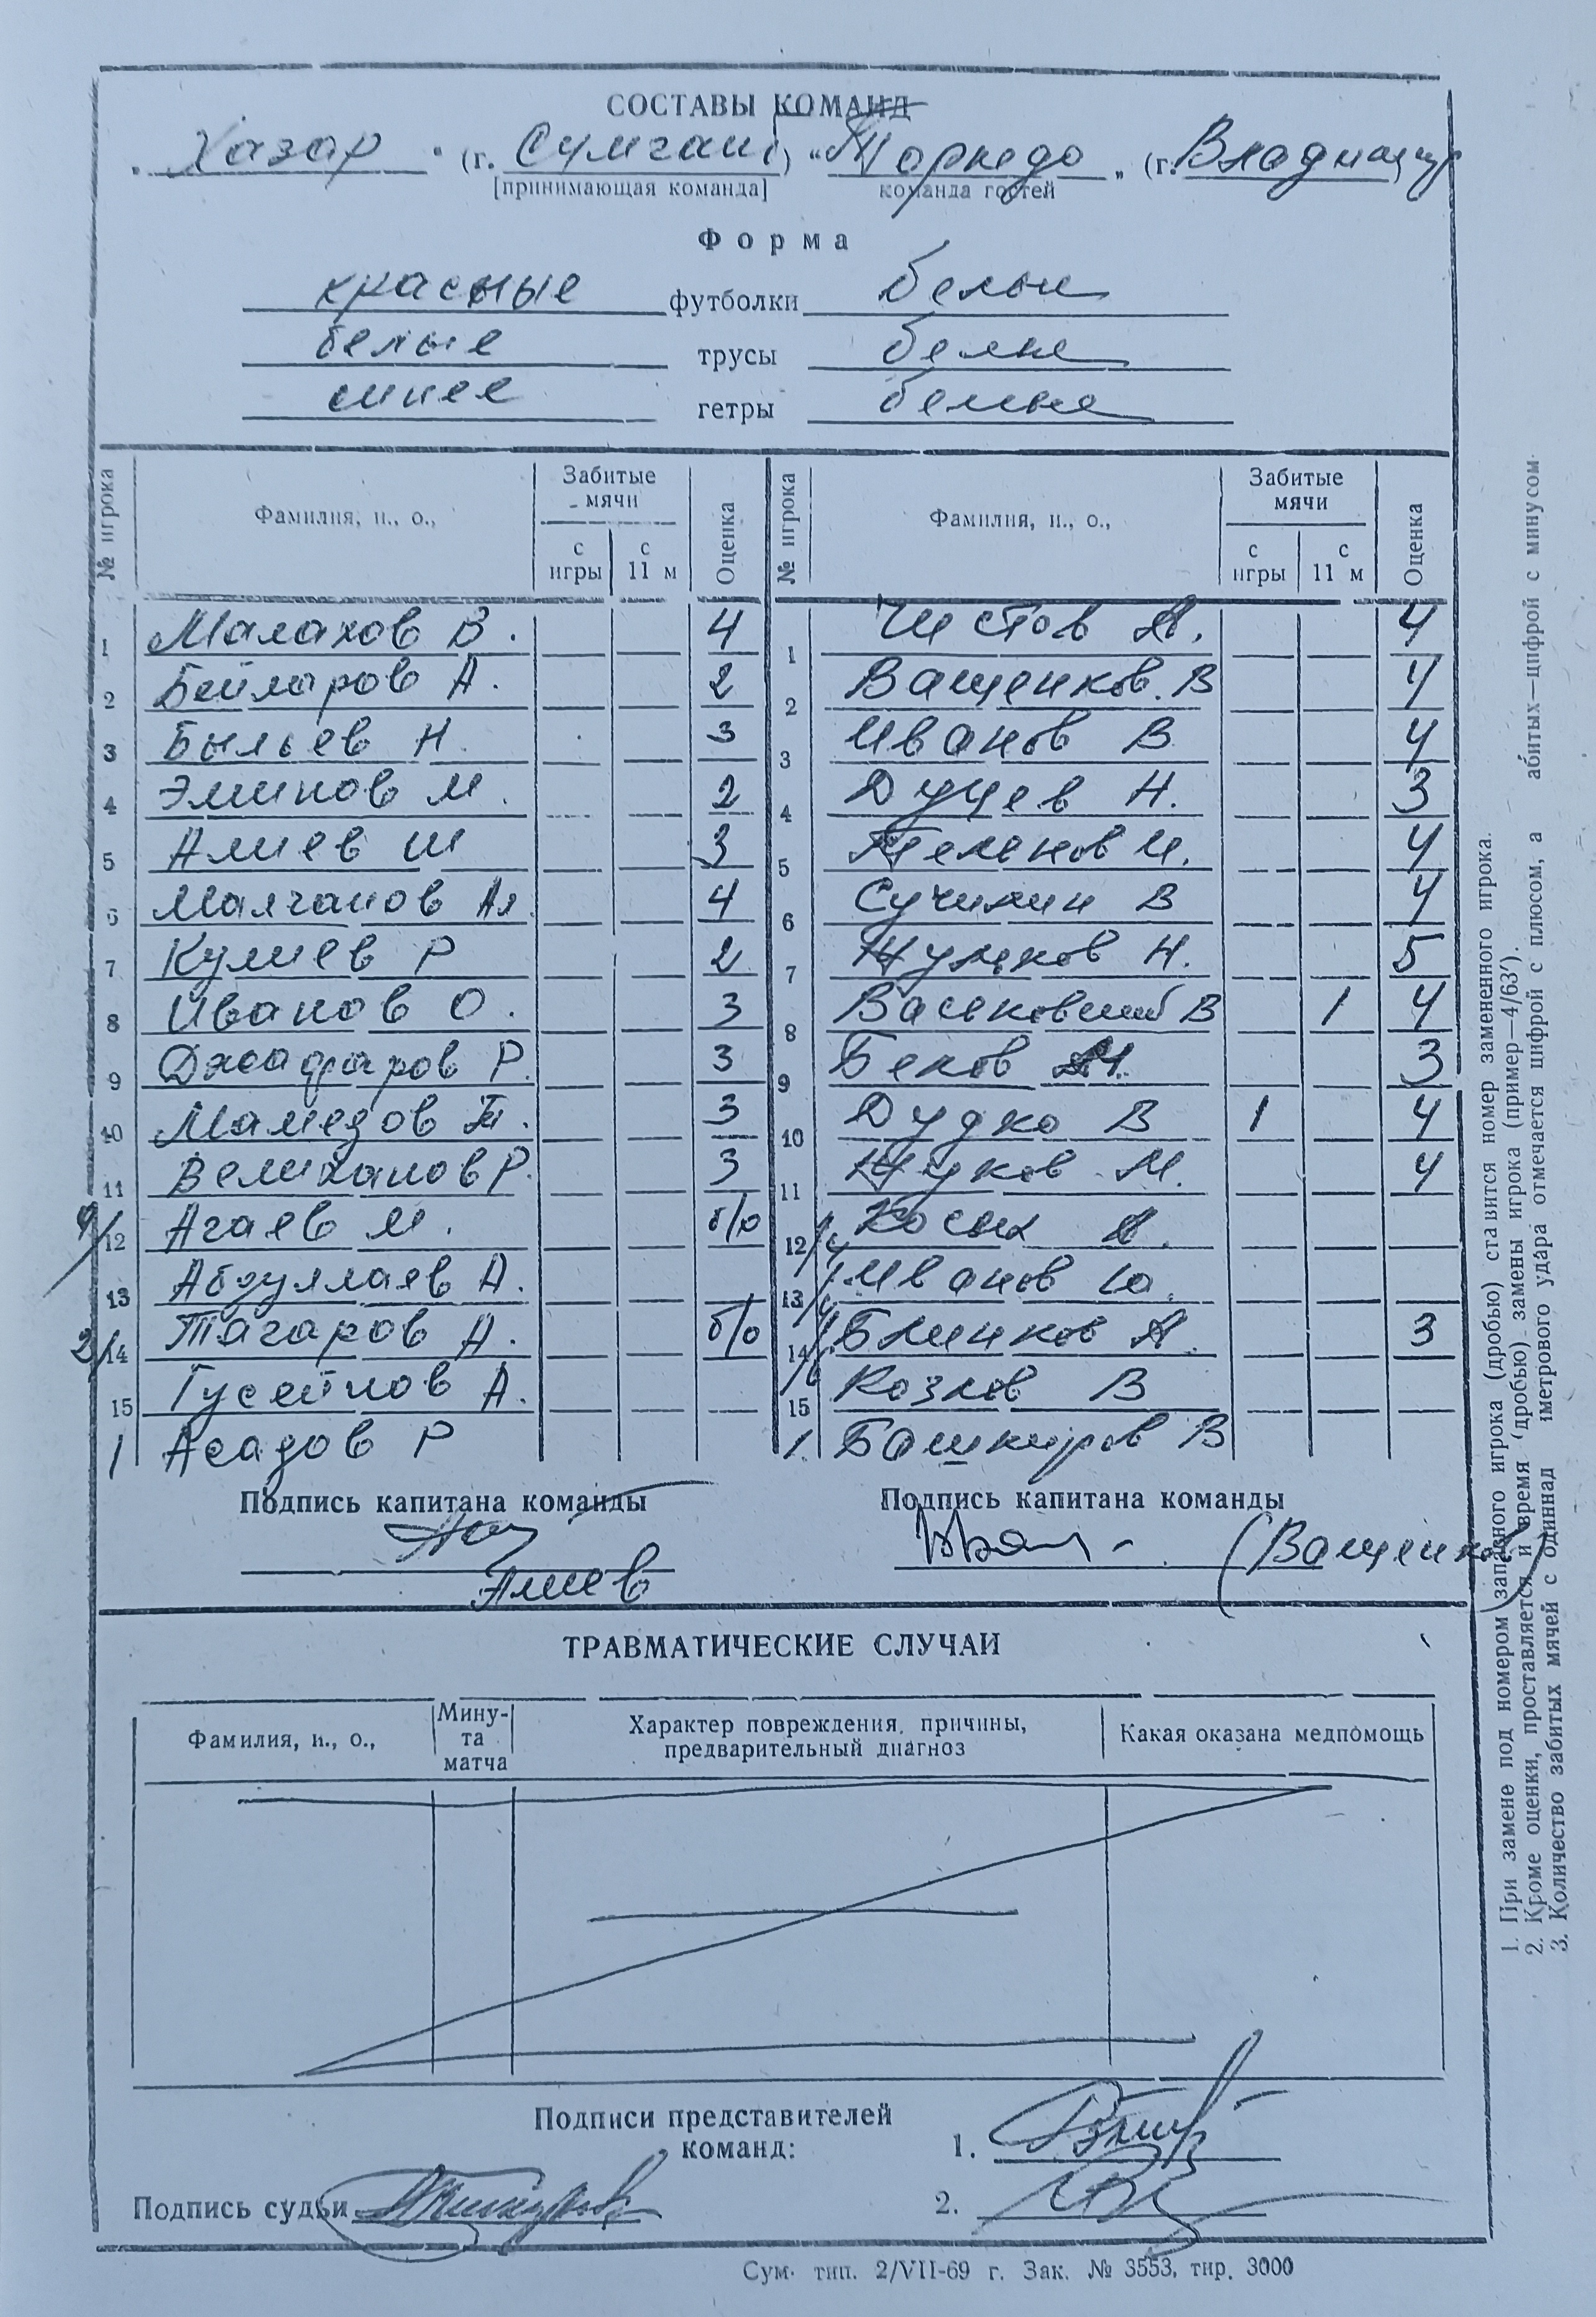 СОСТАВЫ КОМАНД
„Хазар" (г. Сумгаит) „Торпедо„ (г. Владимир
[принимающая команда] команда гостей
Форма
красные футболки белые
белые трусы белые
синее гетры белые
№ игрока Фамилия, и., о., Забитые мячи с игры с 11 м Оценка № игрока Фамилия, и., о., Забитые мячи с игры с 11 м Оценка
1 Малахов В. 4 1 Чистов А. 4
2 Бейларов А. 2 2 Ващенков. В 4
3 Быльев Н. 3 3 Иванов В 4
4 Эминов М. 2 4 Дуцев Н. 3
5 Алиев Ш 3 5 Теленков И. 4
6 Малчанов Ал 4 6 Сучилин В 4
7 Кулиев Р 2 7 Жульков Н. 5
8 Иванов О. 3 8 Васековский В 1 4
9 Джафаров Р. 3 9 Беков 3
10 Мамедов Т. 3 10 Дудко В 1 4
11 Велиханов Р. 3 11 Жуков М. 4
9/12 Агаев М. б/о 12 Косых А.
13 Абдуллаев А. 13 Иванов Ю.
2/14 Тагаров А. б/о 14 Блинков А. 3
15 Гусейнов А. 15 Козлов В
1 Асадов Р 1. Башкиров В
Подпись капитана команды Подпись капитана команды
Алиев (Ващенков)
ТРАВМАТИЧЕСКИЕ СЛУЧАИ
Фамилия, и., о., Мину-та матча Характер повреждения, причины, предварительный диагноз Какая оказана медпомощь
Подписи представителей
команд: 1.
Подпись судьи 2.
Сум. тип. 2/VII-69 г. Зак. № 3553, тир. 3000
1. При замене под номером запасного игрока (дробью) ставится номер замененного игрока.
2. Кроме оценки, проставляется и время (дробью) замены игрока (пример—4/63').
3. Количество забитых мячей с одиннад иметрового удара отмечается цифрой с плюсом, а абитых—цифрой с минусом.